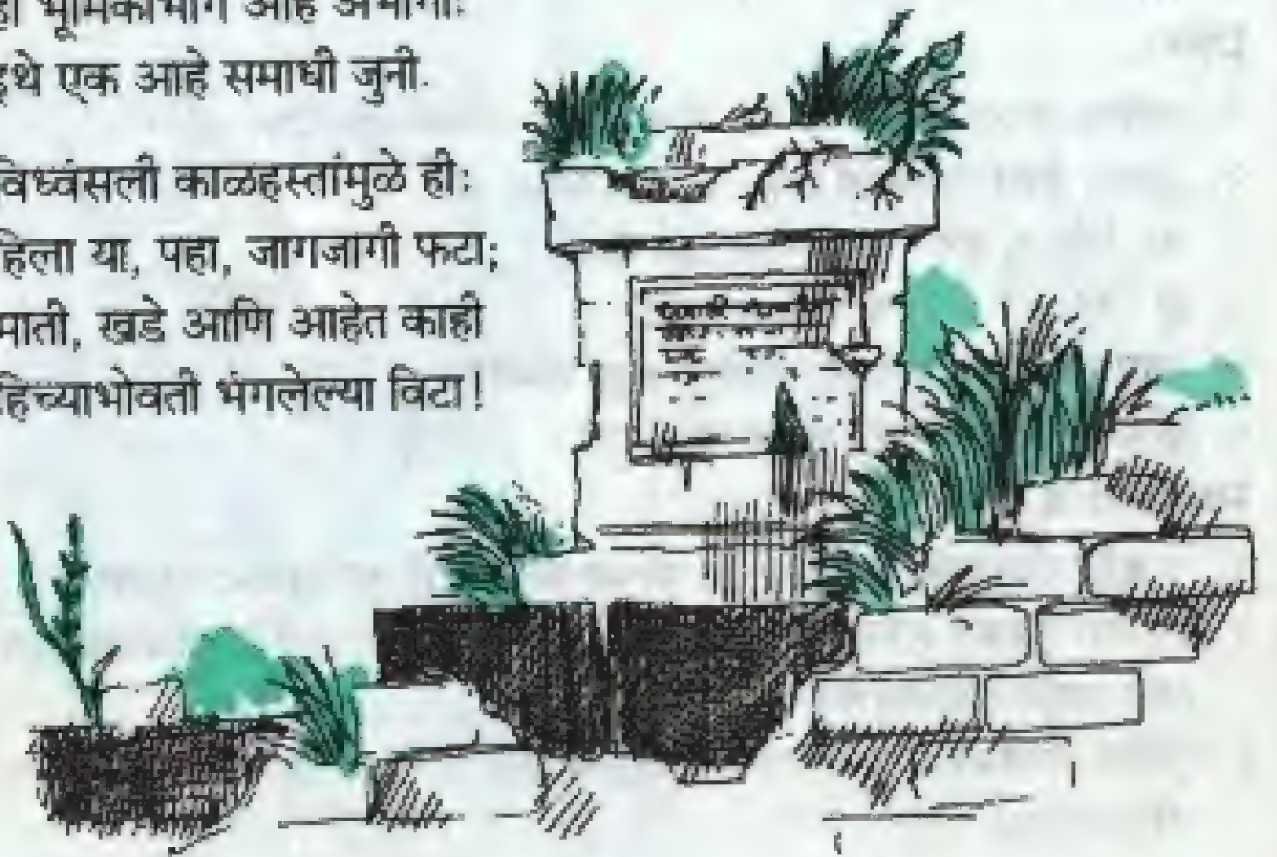 भूमिकाभाग आहे अभागी:
इथे एक आहे समाधी जुनी.
विध्वंसली काळहस्तांमुळे ही:
हिला या, पहा, जागजागी फटा;
माती, खडे आणि आहेत काही
हिच्याभोवती भंगलेल्या विटा!